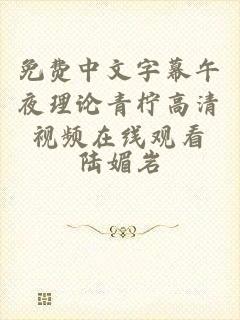 免费中文字幕午
夜理论青柠高清
视频在线观看
陆媚岩